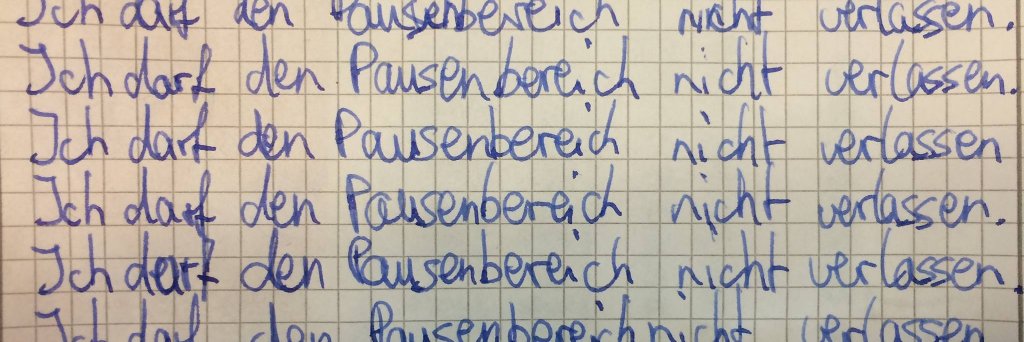 Ich darf den Pausenbereich nicht verlassen.
Ich darf den Pausenbereich nicht verlassen.
Ich darf den Pausenbereich nicht verlassen
Ich darf den Pausenbereich nicht verlassen.
Ich darf den Pausenbereich nicht verlassen.
Ich darf den Pausenbereich nicht verlassen